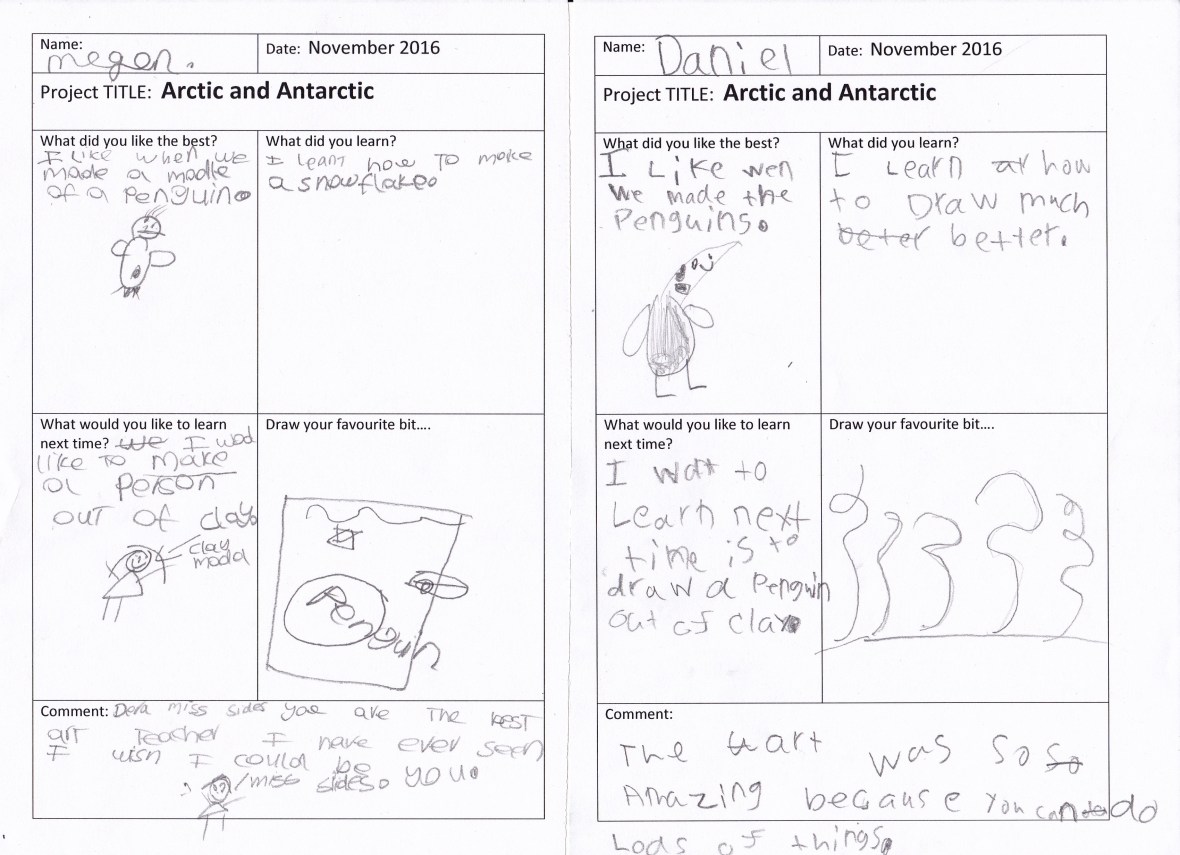 Name:
megen.
Date: November 2016
Project TITLE: Arctic and Antarctic
What did you like the best?
I like when we
made a modle
of a Penguin.
What did you learn?
I learn how To make
a snowflake.
What would you like to learn
next time? we I wod
like to make
a Person
out of clay
clay
modd
Draw your favourite bit....
Penguin
Comment: Dera miss sides yoe are The best
art Teacher I have ever seen
I wish I could be
you.
miss sides.
Name: Daniel
Date: November 2016
Project TITLE: Arctic and Antarctic
What did you like the best?
I Like wen
we made the
Penguins.
What did you learn?
I Learn at how
to Draw much
beter better.
What would you like to learn
next time?
I wat to
Learn next
time is to
draw a Penguin
out of clay
Draw your favourite bit....
Comment:
The art was so so
Amazing because You can do
Lods of things.